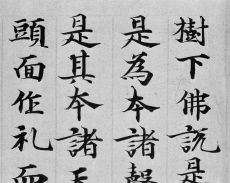 樹下佛説是
是為本諸聲
是其本諸天
頭面作礼而